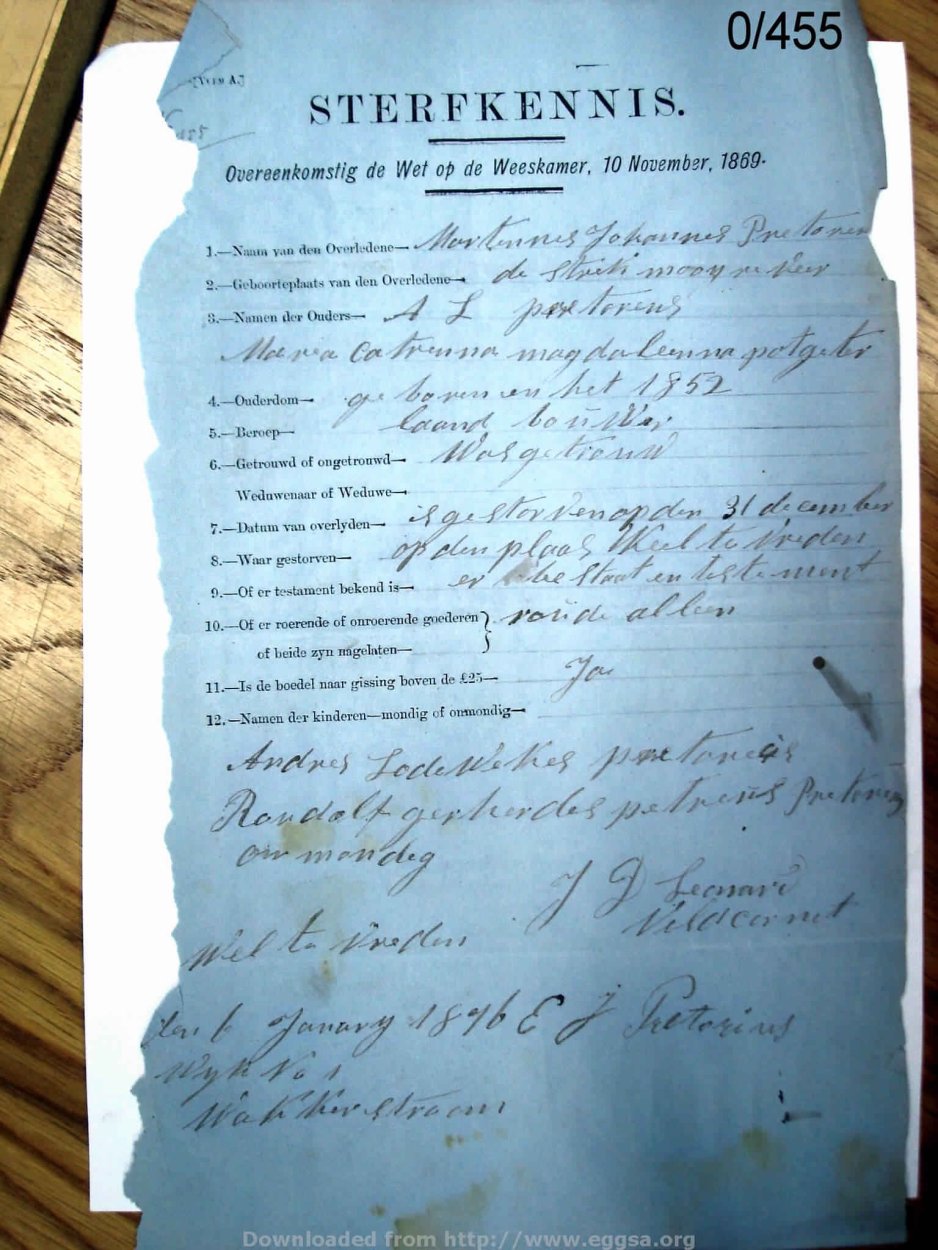 0/455
STERFKENNIS.
Overeenkomstig de Wet op de Weeskamer, 10 November, 1869.
1.—Naam van den Overledene— Martennes Johannes Pretorius
2.—Geboorteplaats van den Overledene— de strek mooy revier
3.—Namen der Ouders— A L pretoreus
Marea Catrenna magdaleenna potgeter
4.—Ouderdom— ge boren en het 1852
5.—Beroep— laand bouwer
6.—Getrouwd of ongetrouwd— Was getrouwd
Weduwenaar of Weduwe—
7.—Datum van overlyden— is gestorven op den 31 december
8.—Waar gestorven— op den plaas Weel te vreden
9.—Of er testament bekend is— er bestaat en testement
10.—Of er roerende of onroerende goederen} alleen
of beide zyn nagelaten—
11.—Is de boedel naar gissing boven de £25— Ja
12.—Namen der kinderen—mondig of onmondig—
Andres Lodewekes pretoreus
Roudolf gerherdes petreus Pretoreus
on mondeg
J D Leonard
Veldcornet
Wel te vreden
den 6 Janary 1896 E J Pretorius
Wyk No 1
Wakkerstroom
Downloaded from http://www.eggsa.org